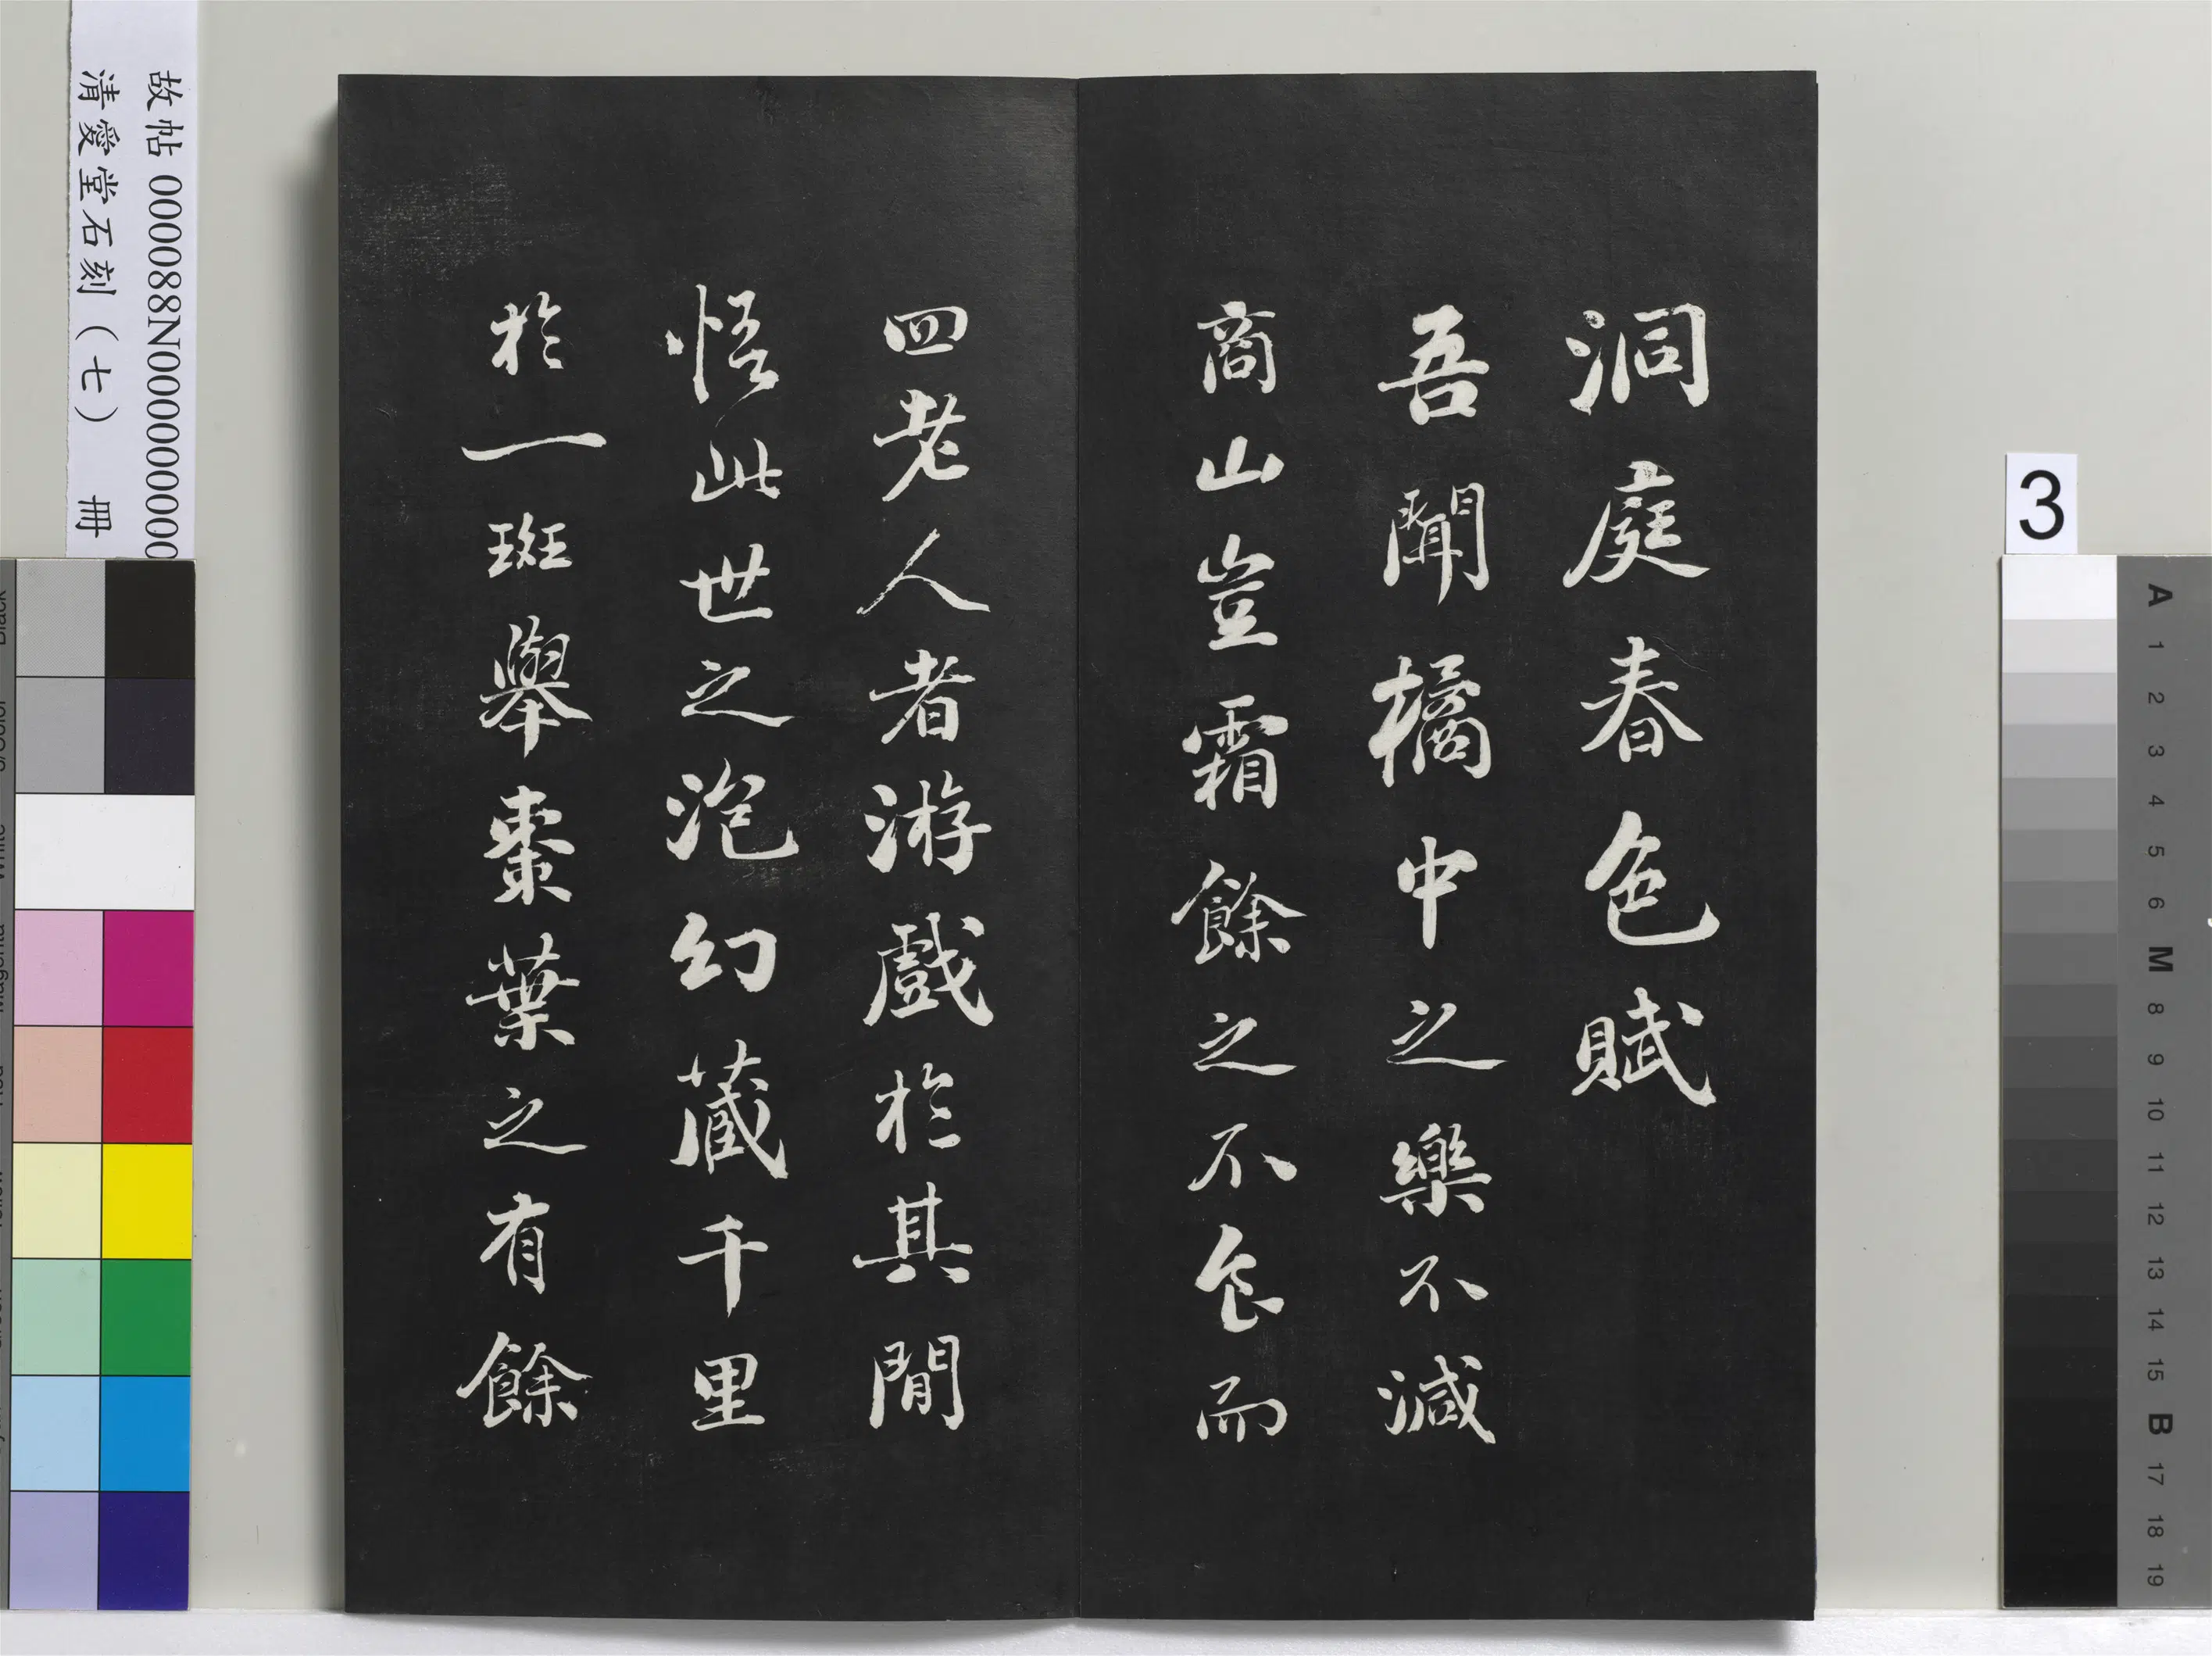 洞庭春色賦
吾聞橘中之樂不減
商山豈霜餘之不食而
四老人者游戲於其間
悟此世之泡幻藏千里
於一斑舉棗葉之有餘
故帖 000088N000000000
清愛堂石刻（七） 冊
3
A 1 2 3 4 5 6 M 8 9 10 11 12 13 14 15 B 17 18 19